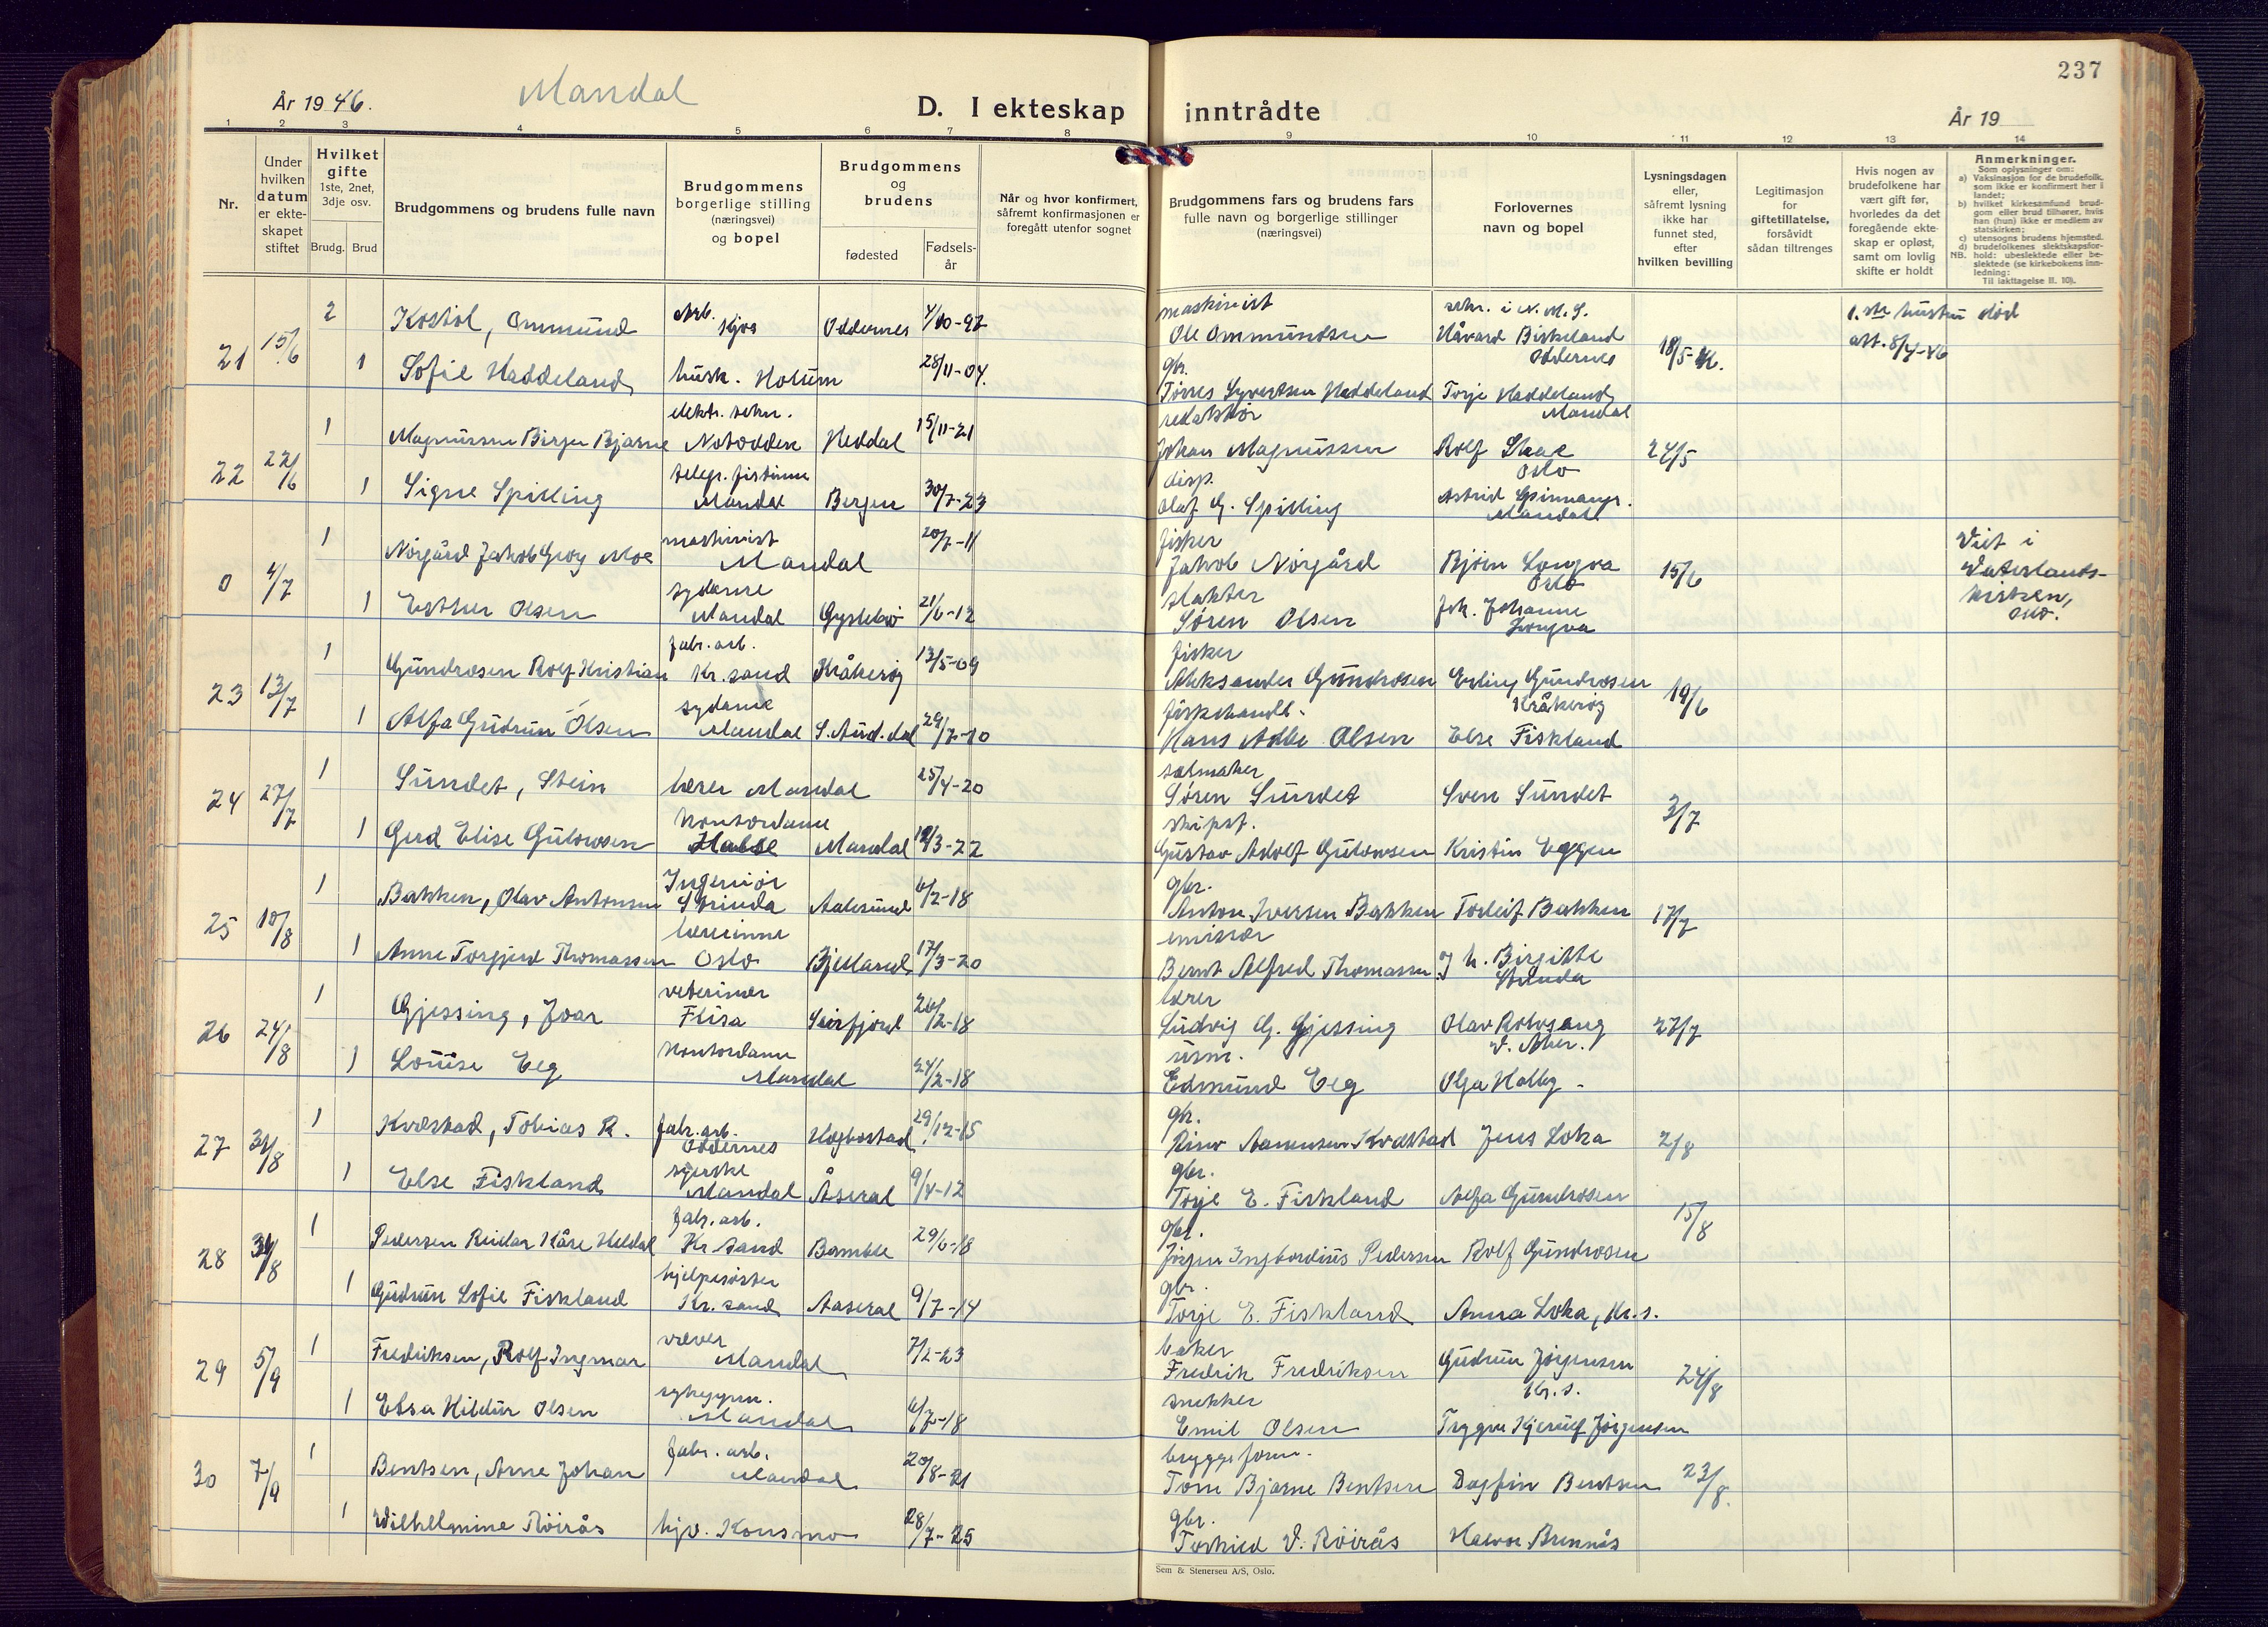 237
År 1946.
Mandal
D. I ekteskap inntrådte
År 19
1 2 3 4 5 6 7 8 9 10 11 12 13 14
Nr.
Under hvilken datum er ekteskapet stiftet
Hvilket gifte
1ste, 2net, 3dje osv.
Brudg. Brud
Brudgommens og brudens fulle navn
Brudgommens borgerlige stilling (næringsvei) og bopel
Brudgommens og brudens
fødested
Fødselsår
Når og hvor konfirmert, såfremt konfirmasjonen er foregått utenfor sognet
Brudgommens fars og brudens fars fulle navn og borgerlige stillinger (næringsvei)
Forlovernes navn og bopel
Lysningsdagen eller, såfremt lysning ikke har funnet sted, efter hvilken bevilling
Legitimasjon for giftetillatelse, forsåvidt sådan tiltrenges
Hvis nogen av brudefolkene har vært gift før, hvorledes da det foregående ekteskap er opløst, samt om lovlig skifte er holdt
Anmerkninger.
Som oplysninger om:
a) Vaksinasjon for de brudefolk, som ikke er konfirmert her i landet;
b) hvilket kirkesamfund brudgom eller brud tilhører, hvis han (hun) ikke er medlem av statskirken;
c) utensogns brudens hjemsted.
d) brudefolkenes slektskapsforhold: ubeslektede eller beslektede (se kirkebokens innledning:
NB. Til iakttagelse II. 10).
Arb. maskinist sekr. i N. M. S. 1.ste hustru død
2 Kostøl, Ommund Kjos Oddernes Ole Ommundsen Håvard Birkeland
21 15/6 Oddernes 18/5-46. att. 8/4-46
1 Sofie Haddeland husk. Holum 28/11-04. gbr.
Tørres Syvertsen Haddeland Torje Haddeland
Mandal
elektr. tekn. redaktør
1 Magnussen Birger Bjarne Notodden Heddal 15/11-21 Johan Magnussen Rolf
22 22/6 Oslo 24/5
telegr. disp.
1 Signe Spilling Mandal Bergen 30/7-23 Olaf G. Spilling Astrid
Mandal
maskinist fisker Viet i
1 Nørgård Jakob Georg Moe Mandal 20/7-11 Jakob Nørgård Bjørn Longva Vaterlands-
0 4/7 Oslo 15/6 kirken,
sydame slakter Oslo.
1 Esther Olsen Mandal 21/6-12 Søren Olsen Johanne
Longva
fabr. arb. fisker
1 Gundrosen Rolf Kristian Kr. sand Kråkerøy 13/5-09 Aleksander Gundrosen Erling Gundrosen
23 13/7 Kråkerøy 19/6
sydame fiskehandl.
1 Alfa Gudrun Olsen Mandal S. Aud.dal 29/7-10 Hans Olsen Else Fiskland
salmaker
1 Sundet, Stein lærer Mandal 25/4-20 Søren Sundet Sven Sundet
24 27/7 3/7
kontordame skipsf.
1 Gerd Elise Gulowsen Halse Mandal 3-22 Gustav Adolf Gulowsen Kristin Eggen
Ingeniør gbr.
1 Bakken, Olav Antonsen Strinda Aalesund 6/2-18 Anton Iversen Bakken Torleif Bakken
25 10/8 17/7
lærerinne emissær
1 Anne Torgjerd Thomassen Oslo Bjelland 17/3-20 Bernt Alfred Thomassen Birgitte
Strinda
veterinær lærer
1 Gjessing, Joar Flisa Leirfjord 20/2-18 Ludvig G. Gjessing Olav
26 24/8 V. Aker. 27/7
kontordame
1 Louise Eeg Mandal 24/2-18 Edmund Eeg Olga Holby
fabr. arb. gbr.
1 Kvåstad, Tobias R. Oddernes Hægbostad 29/12-15 Kvåstad Jens Loka
27 31/8 2/8
syerske gbr.
1 Else Fiskland Mandal Åseral 9/4-12 Torje E. Fiskland Alfa Gundrosen
fabr. arb. gbr. 15/8
1 Pedersen Reidar Kåre Heldal Kr. sand Bamble 29/6-18 Jørgen Pedersen Rolf Gundrosen
28 31/8
hjelpesøster gbr.
1 Gudrun Sofie Fiskland Kr. sand Aaseral 9/7-14 Torje E. Fiskland Anna Loka, Kr. s.
væver baker
1 Fredriksen, Rolf Ingmar Mandal 7/2-23 Fredrik Fredriksen Gudrun Jørgensen
29 5/9 Kr. s. 24/8
snekker
1 Elsa Hildur Olsen Mandal 6/7-18 Emil Olsen Trygve Kjerulf Jørgensen
fabr. arb. bryggeform.
1 Bentsen, Arne Johan Mandal 20/8-21 Tom Bjarne Bentsen Dagfin Bentsen
30 7/9 23/8.
gbr.
1 Wilhelmine Röirås hjv. Konsmo 28/7-25 Torkild V. Röirås Halvor Brennås
Sem & Stenersen A/S, Oslo.